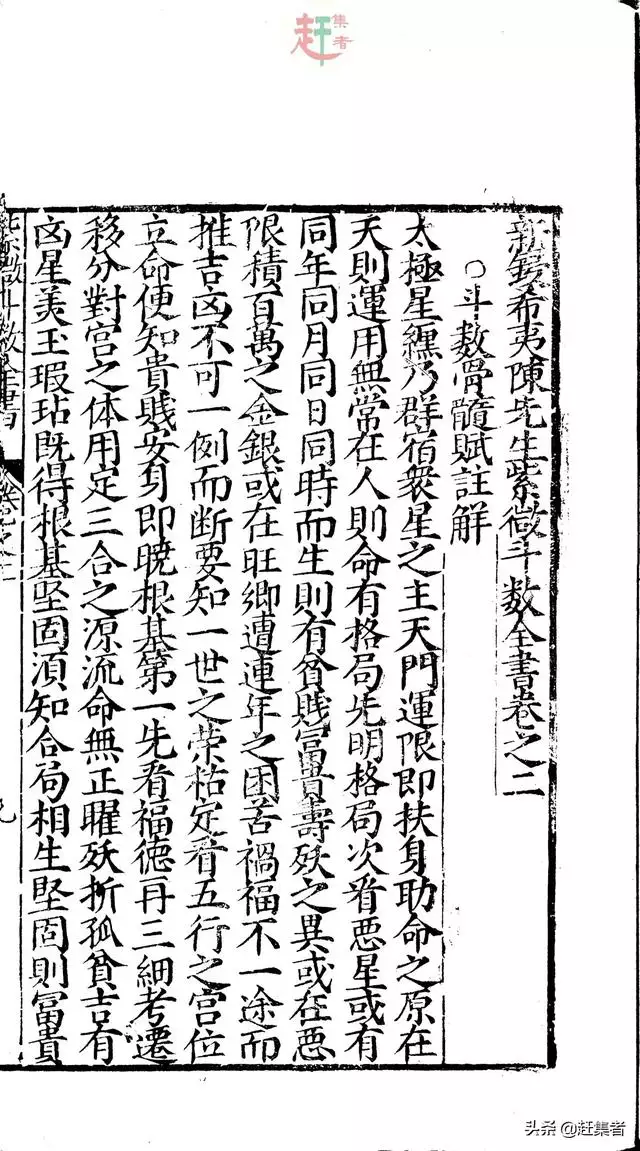 趕集者
新鋟希夷陳先生紫微斗數全書卷之二
○斗數骨髓賦註解
太極星纏乃群宿衆星之主天門運限即扶身助命之原在
天則運用無常在人則命有格局先明格局次看惡星或有
同年同月同日同時而生則有貧賤富貴壽殀之異或在惡
限積百萬之金銀或在旺鄉遭連年之困苦禍福不一途而
推吉凶不可一例而断要知一世之荣枯定看五行之宮位
立命便知貴賤安身即曉根基第一先看福德再三細考遷
移分對宮之体用定三合之源流命無正曜殀折孤貧吉有
凶星美玉瑕玷既得根基堅固須知合局相生堅固則富貴
頭条 @赶集者